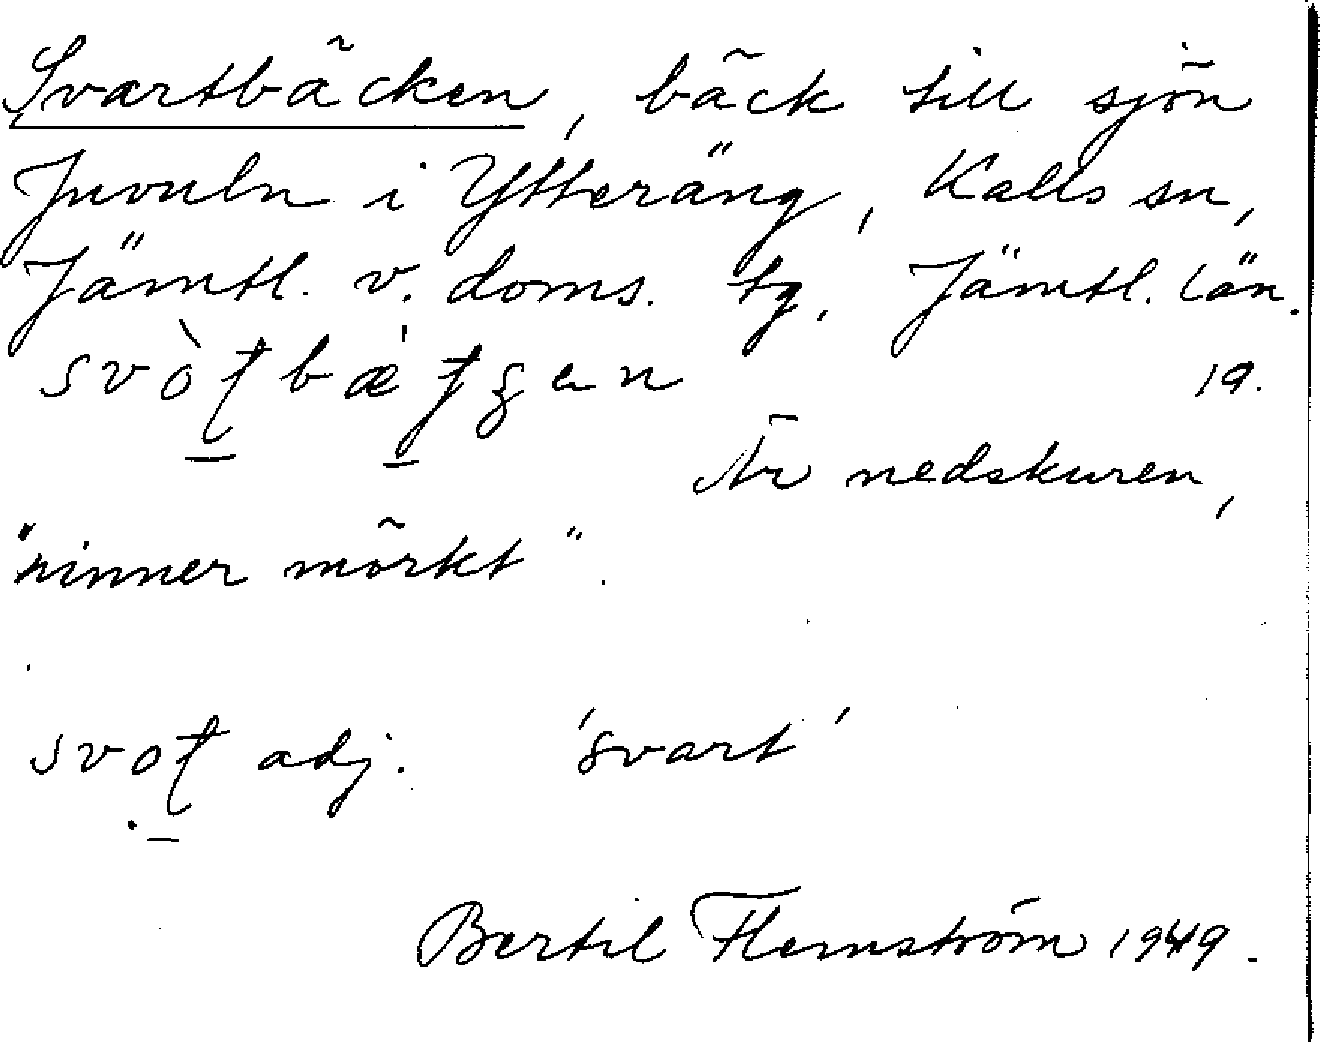 Svartbäcken, bäck till sjön
Juvuln i Ytteräng, Kalls sn,
Jämtl. v. doms. tg, Jämtl. län.
19.
Är nedskuren,
"rinner mörkt".
adj. 'svart'
Bertil Flemström 1949.